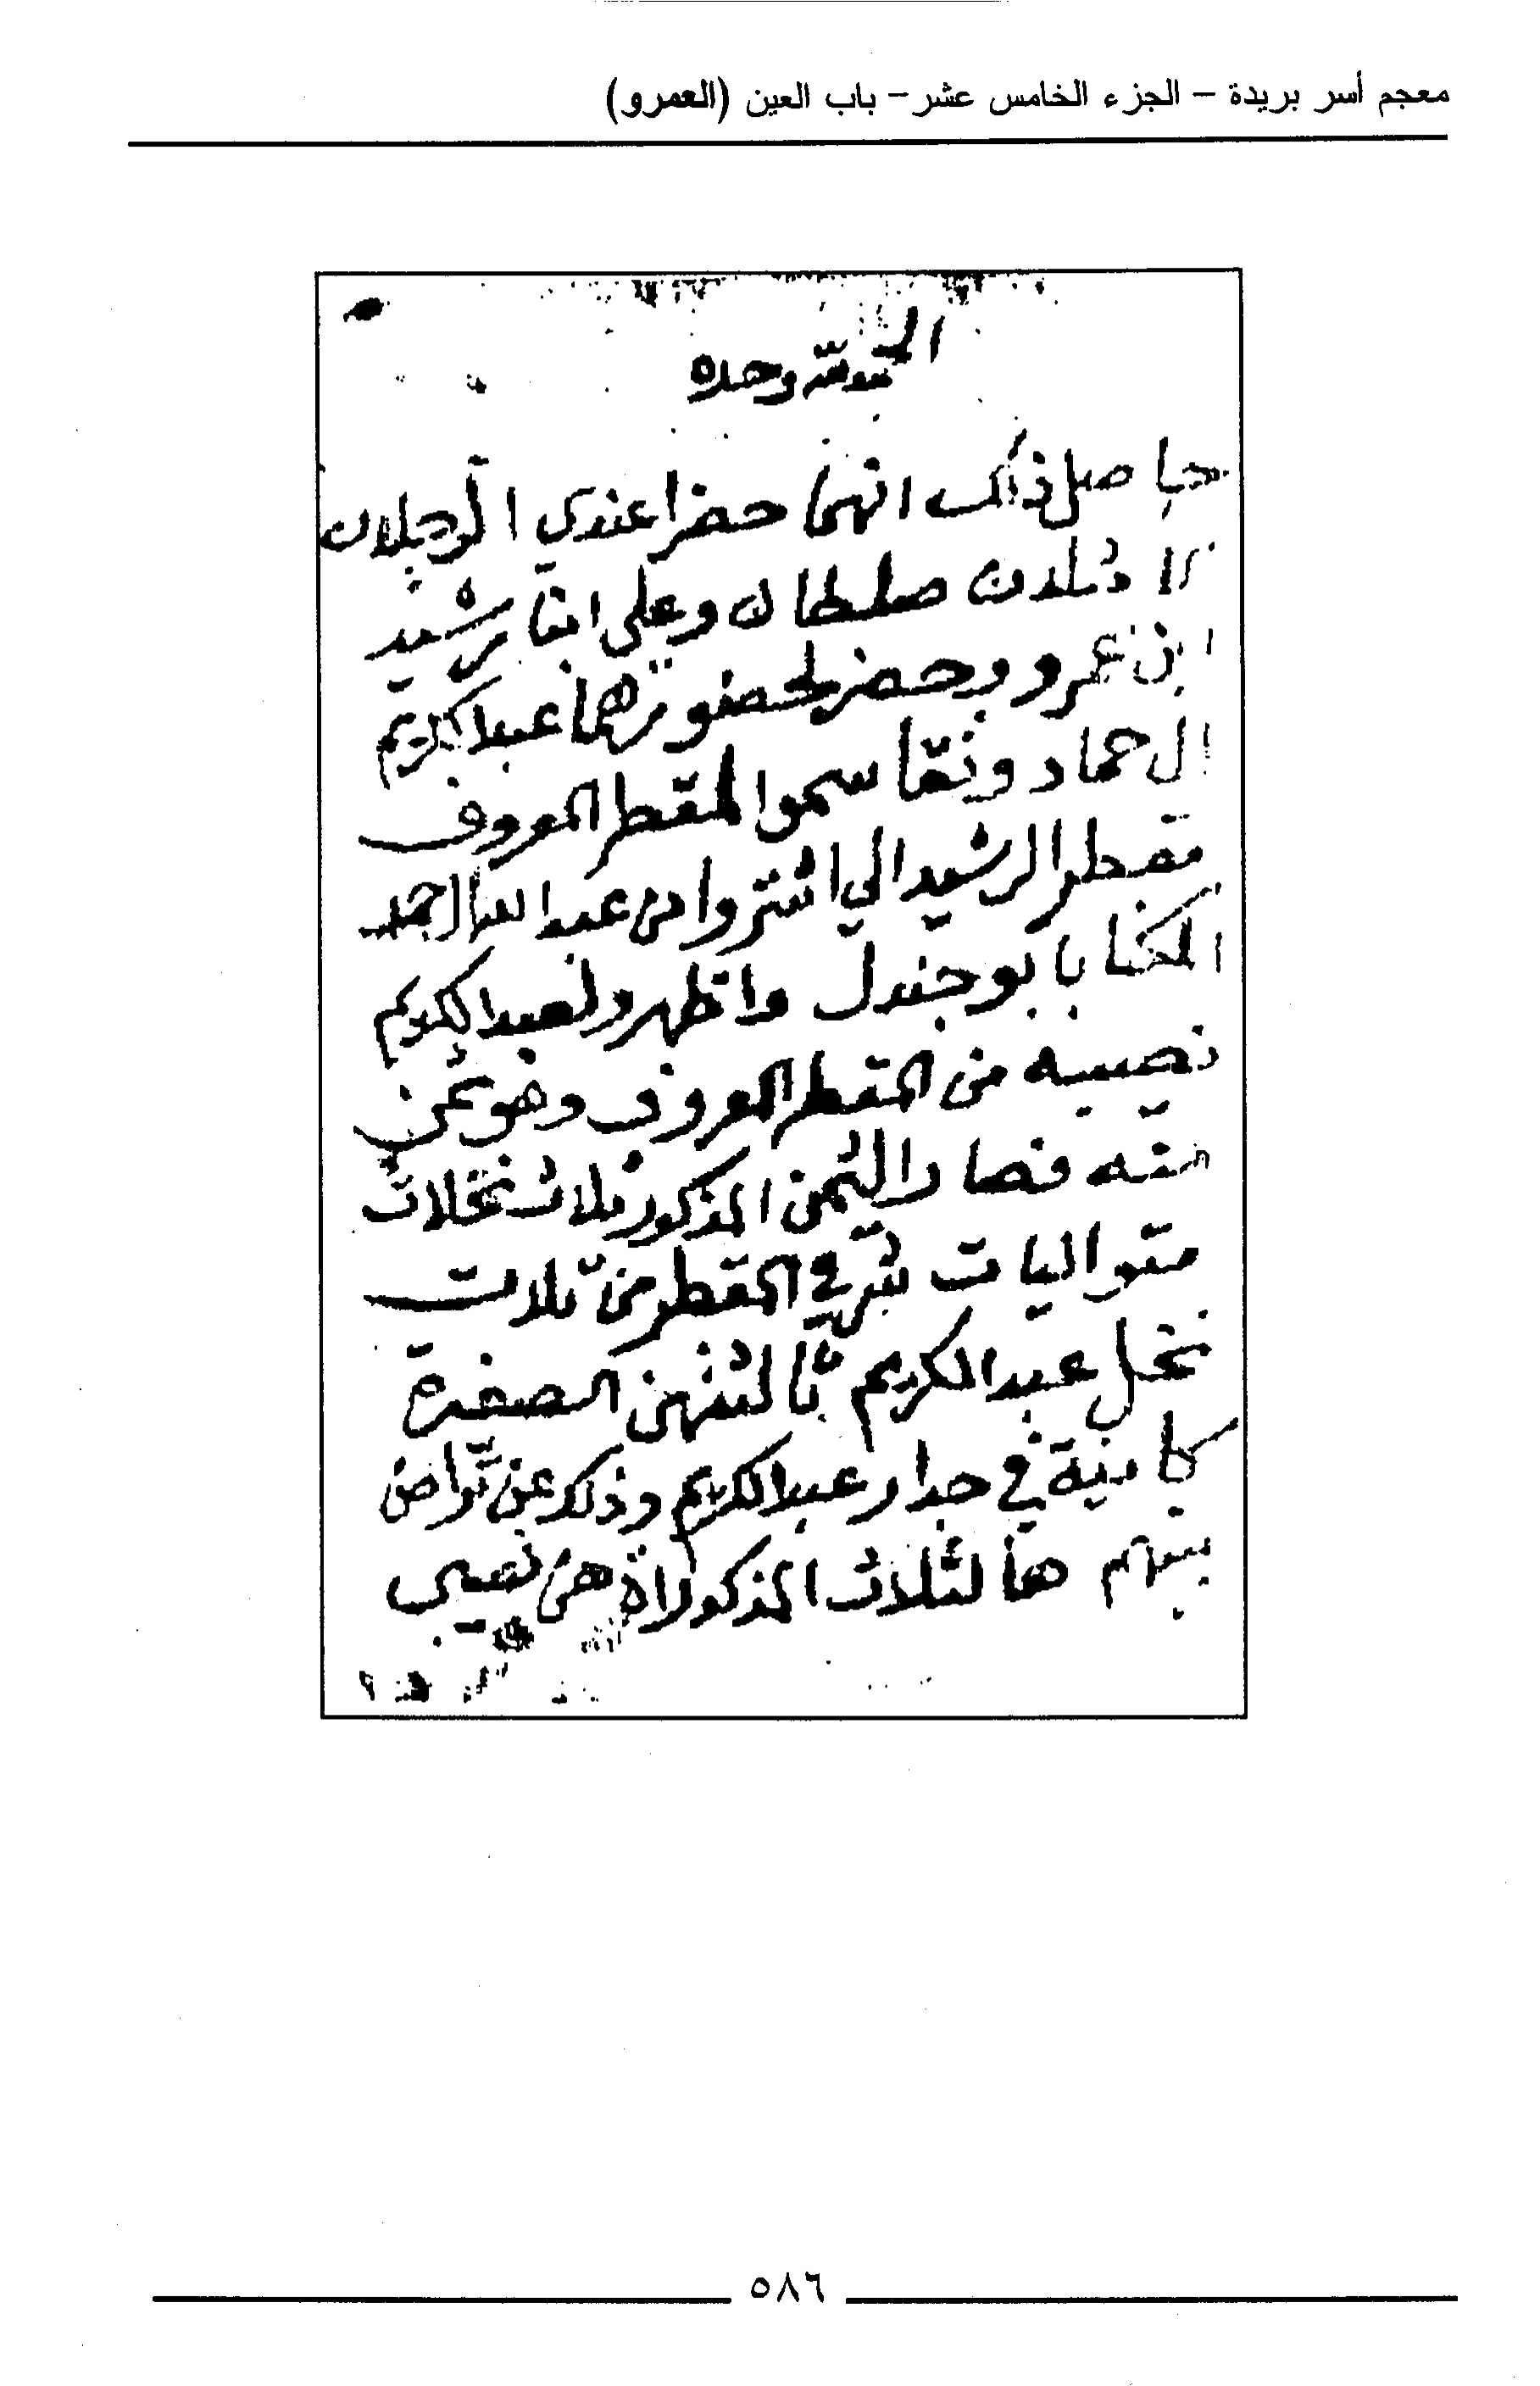 معجم أسر بريدة – الجزء الخامس عشر – باب العين (العمرو)
الحمد لله وحده
حاصل ذالك انهما حضرا عندي الرجلان
صلطان وعلى ابنا رشيد
ابن عمرو وحضر لحضورهما عبدالكريم
ال حماد وتقاسموا المقطر المعروف
مقطر الرشيد الي اشتروا من عبدالله
بابو جندل واظهرو لعبدالكريم
نصيبه من المقطر المعروف وهو ثمن
منه فصار الثمن المذكور ثلاث نخلات
متواليات في المقطر من ثلاث
نخل عبدالكريم الصغيرة
في جدار عبدالكريم وذلك عن تراض
بينهم هالثلاث المذكوراة هن نصيب
٥٨٦